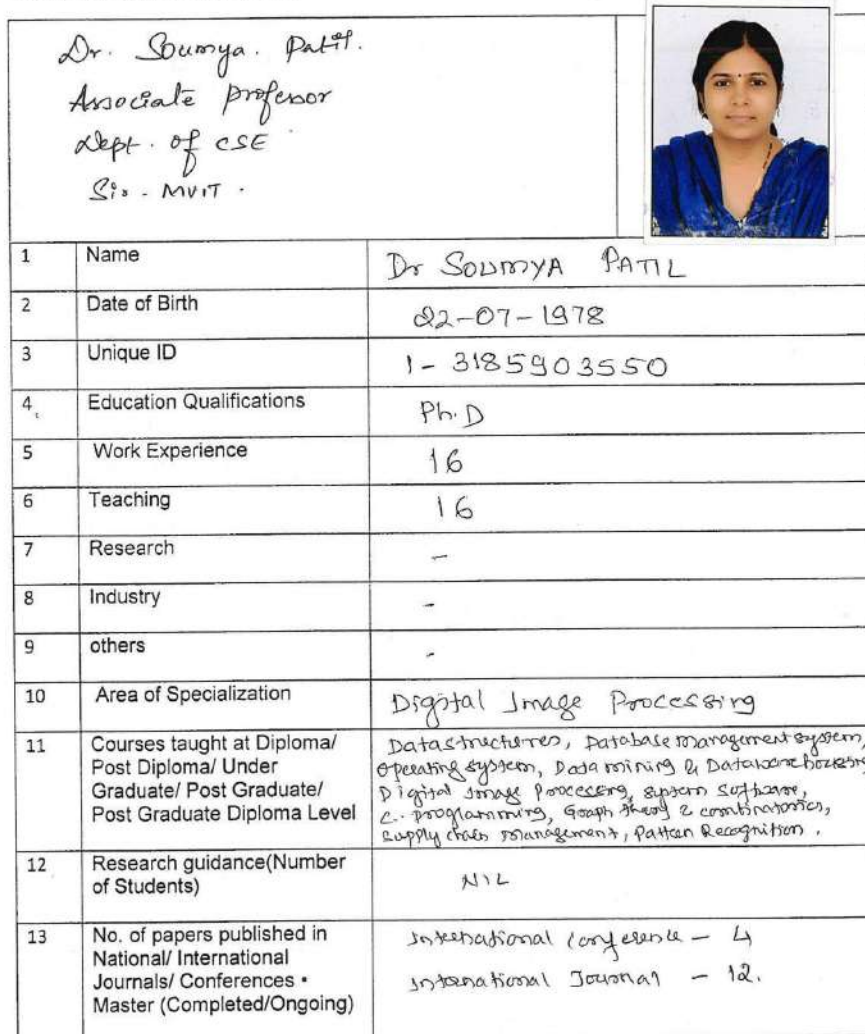 Dr. Soumya. Patil.
Associate professor
Dept. of CSE
Sir. MVIT.
1 Name Dr SOUMYA PATIL
2 Date of Birth 22-07-1978
3 Unique ID 1-3185903550
4 Education Qualifications Ph.D
5 Work Experience 16
6 Teaching 16
7 Research -
8 Industry -
9 others -
10 Area of Specialization Digital Image Processing
11 Courses taught at Diploma/
Post Diploma/ Under
Graduate/ Post Graduate/
Post Graduate Diploma Level
Datastructures, Database management system,
operating system, Data mining & Datawarehousing
Digital Image Processing, system software,
C. programming, Graph theory & combinatorics,
supply chain management, Pattern Recognition.
12 Research guidance(Number
of Students) NIL
13 No. of papers published in
National/ International
Journals/ Conferences •
Master (Completed/Ongoing)
International conference - 4
International Journal - 12.